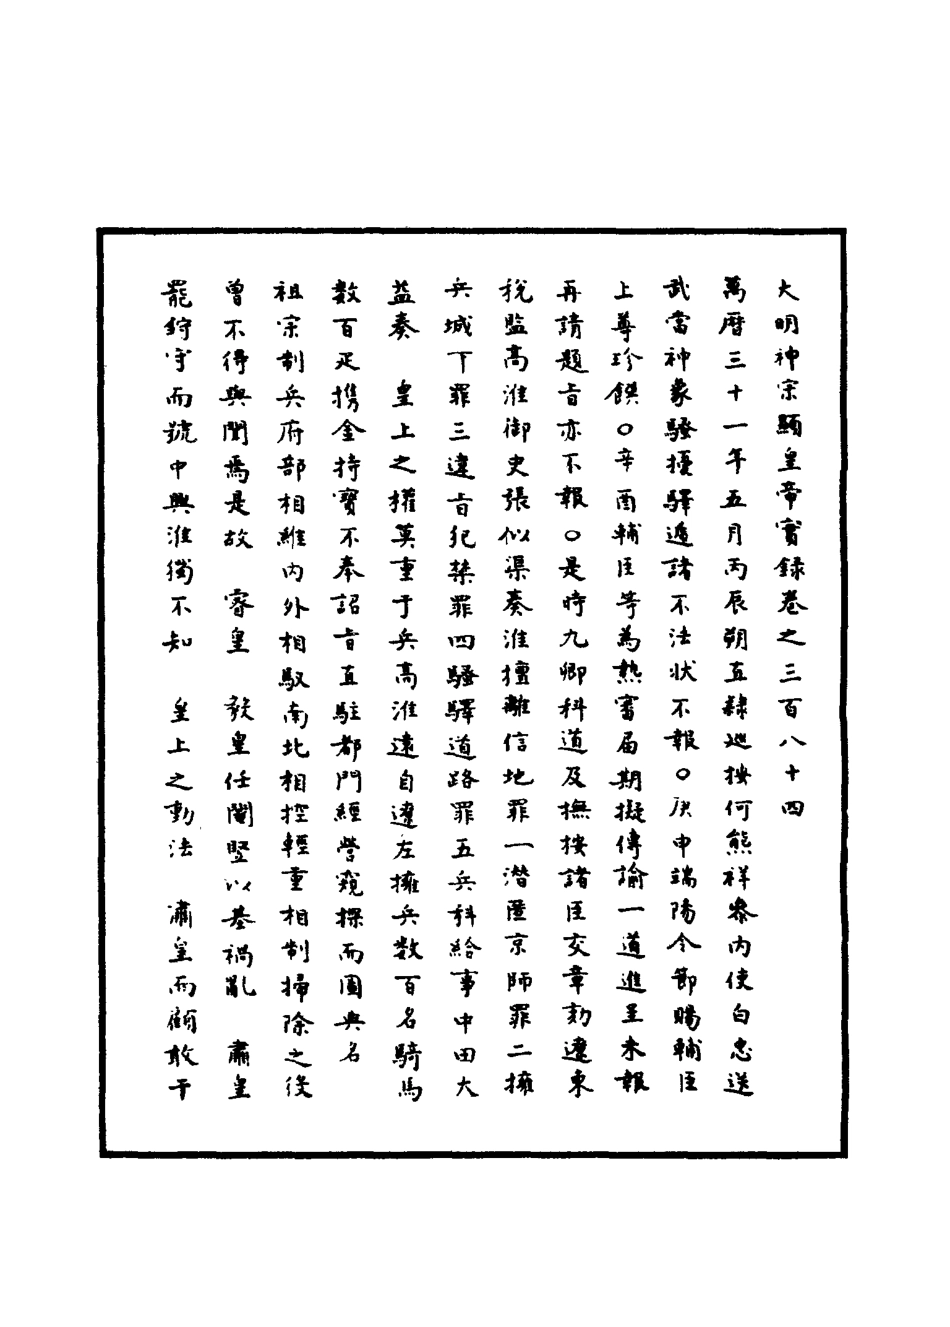 大明神宗顯皇帝實録卷之三百八十四
萬曆三十一年五月丙辰朔直隸巡按何熊祥叅内使白忠送
武當神象騷擾驛遞諸不法狀不報○庚申端陽令節賜輔臣
上尊珍饌○辛酉輔臣等為熱審届期擬傳諭一道進呈未報
再請題旨亦不報○是時九卿科道及撫按諸臣交章劾遼東
稅監高淮御史張似渠奏淮擅離信地罪一潛匿京師罪二擁
兵城下罪三違旨犯禁罪四騷驛道路罪五兵科給事中田大
益奏　皇上之權莫重于兵高淮遠自遼左擁兵数百名騎馬
数百疋携金持寳不奉詔旨直駐都門經營窺探而圖典名
祖宗制兵府部相維内外相馭南北相控輕重相制掃除之後
曾不得與聞焉是故　睿皇　毅皇任閹竪以基禍亂　肅皇
罷鎊守而號中興淮獨不知　皇上之動法　肅皇而顧敢干